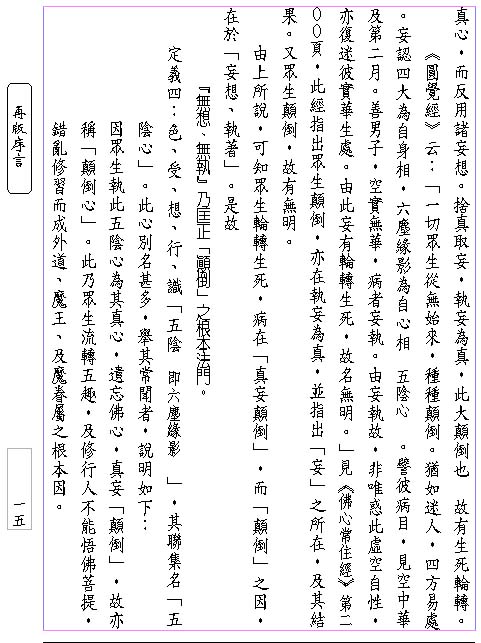 真心，而反用諸妄想。捨真取妄，執妄為真，此大顛倒也　故有生死輪轉。
《圓覺經》云：「一切眾生從無始來，種種顛倒。猶如迷人，四方易處
。妄認四大為自身相，六塵緣影為自心相　五陰心　。譬彼病目，見空中華
及第二月。善男子，空實無華，病者妄執。由妄執故，非唯惑此虛空自性，
亦復迷彼實華生處。由此妄有輪轉生死，故名無明。」見《佛心常住經》第二
００頁，此經指出眾生顛倒，亦在執妄為真，並指出「妄」之所在，及其結
果。又眾生顛倒，故有無明。
由上所說，可知眾生輪轉生死，病在「真妄顛倒」，而「顛倒」之因，
在於「妄想、執著」。是故
『無想、無執』乃匡正「顛倒」之根本法門。
定義四：色、受、想、行、識「五陰　即六塵緣影　」，其聯集名「五
陰心」。此心別名甚多，舉其常聞者，說明如下：
因眾生執此五陰心為其真心，遺忘佛心，真妄「顛倒」，故亦
稱「顛倒心」。此乃眾生流轉五趣，及修行人不能悟佛菩提，
錯亂修習而成外道、魔王、及魔眷屬之根本因。
再版序言
一五